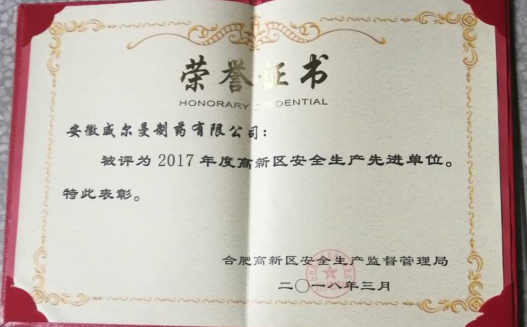 荣誉证书
HONORARY CREDENTIAL
安徽威尔曼制药有限公司:
被评为2017年度高新区安全生产先进单位。
特此表彰。
合肥高新区安全生产监督管理局
二〇一八年三月